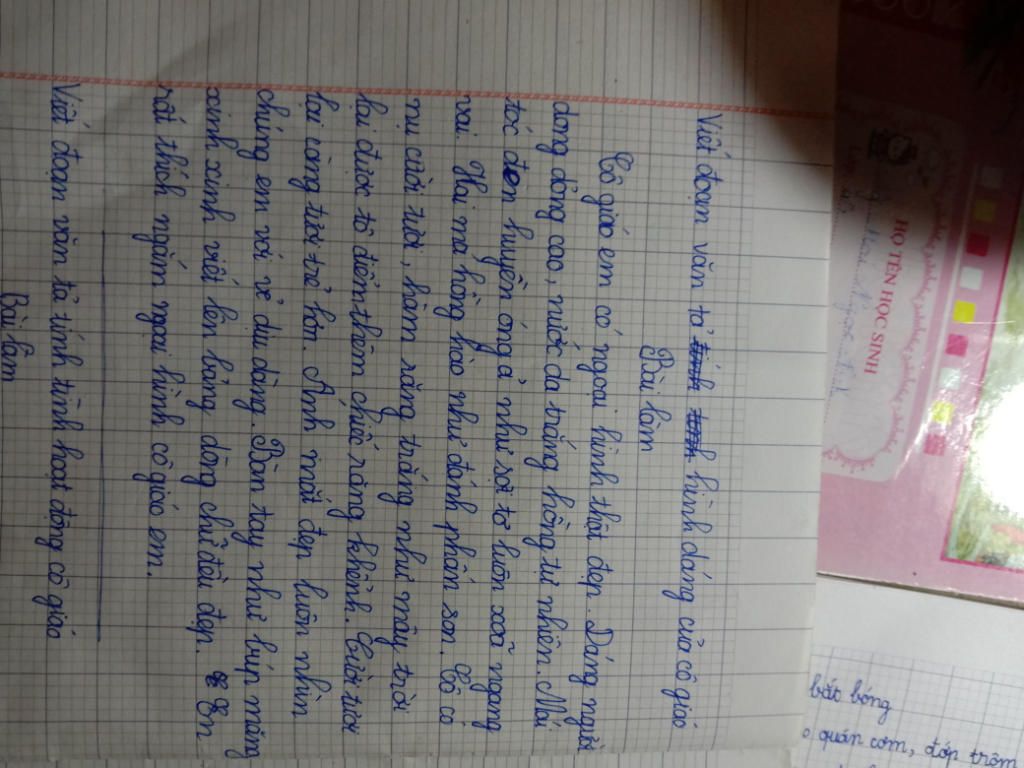 Viết đoạn văn tả hình dáng của cô giáo
Bài làm
Cô giáo em có ngoại hình thật đẹp. Dáng người
dong dỏng cao, nước da trắng hồng tự nhiên. Mái
tóc đen huyền óng ả như sợi tơ luôn xoã ngang
vai. Hai má hồng hào như đánh phấn son. Cô có
nụ cười tươi, hàm răng trắng như mây trời
lại được tô điểm thêm chiếc răng khểnh. Cười tươi
lại càng tươi trẻ hơn. Ánh mắt đẹp luôn nhìn
chúng em với vẻ dịu dàng. Bàn tay như búp măng
xinh xinh viết lên bảng dòng chữ đều đẹp. Em
rất thích ngắm ngoại hình cô giáo em.
Viết đoạn văn tả tính tình hoạt động cô giáo
Bài làm
HỌ TÊN HỌC SINH
bát bóng
quán cơm, đớp trộm